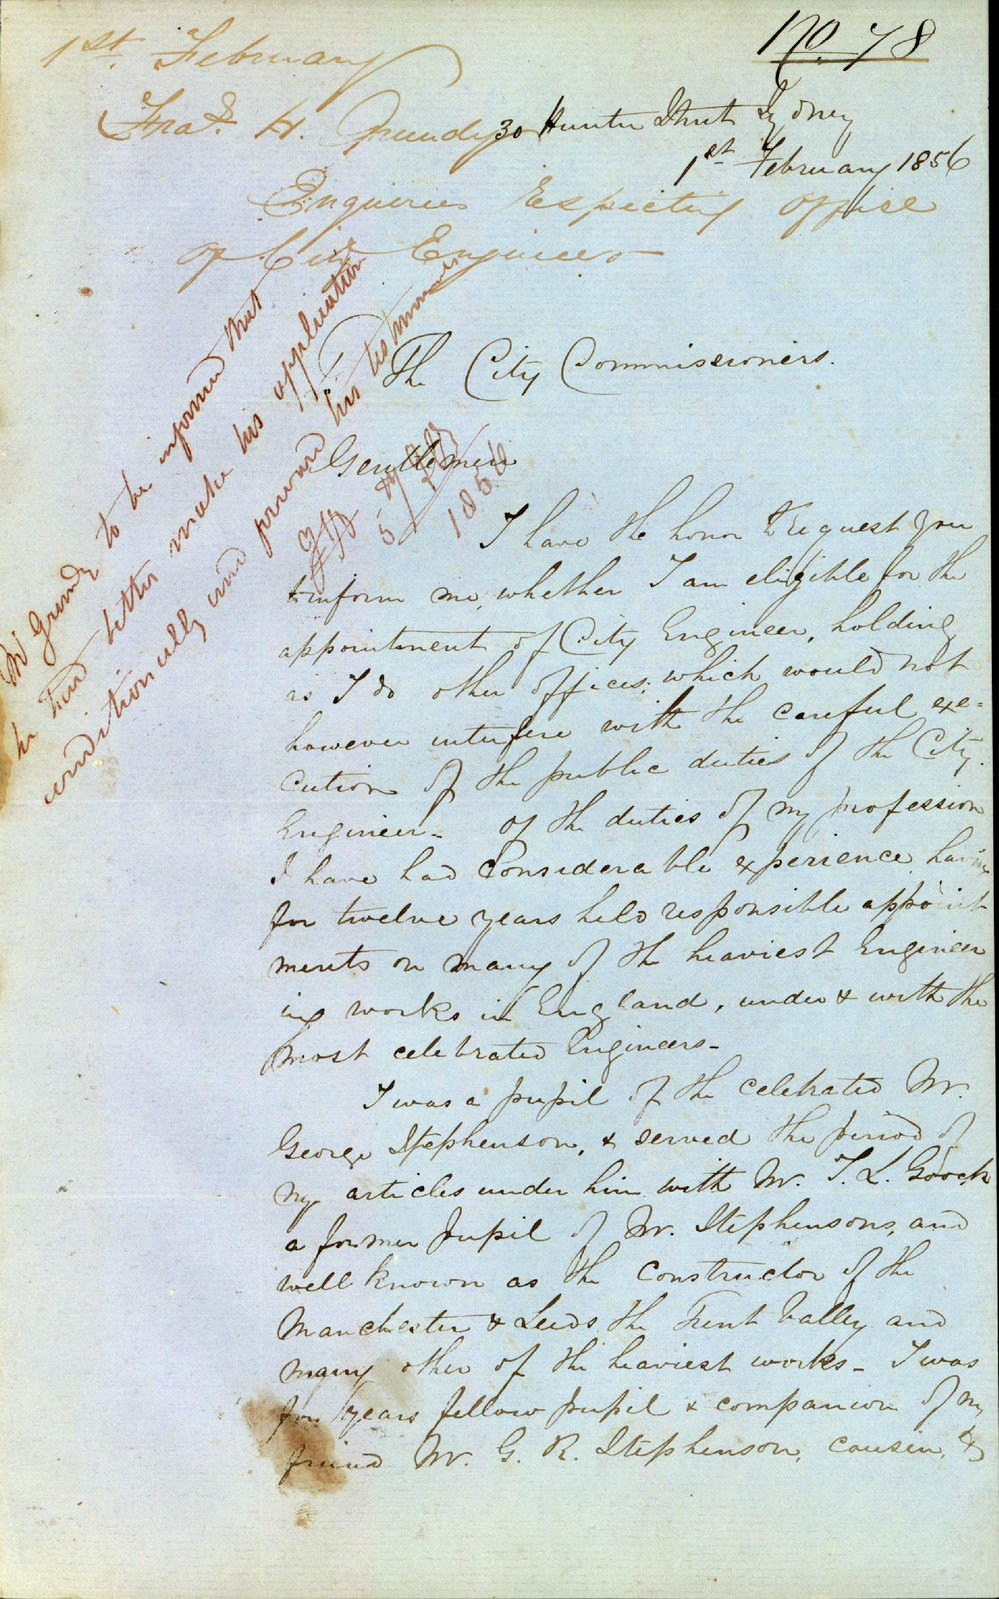 No. 78
1st. February
Fras. H. Grundy
30 Hunter Street Sydney
1st February 1856
Enquiries Respecting Office
of City Engineer
Mr Grundy to be informed that
he had better make his application
conditionally and forward his testimonials
5/
1856
To The City Commissioners.
Gentlemen
I have the honor to request you
to inform me, whether I am eligible for the
appointment of City Engineer, holding
as I do other offices; which would not
however interfere with the careful exe-
cution of the public duties of the City
Engineer - Of the duties of my profession
I have had considerable experience having
for twelve years held responsible appoint
ments on many of the heaviest Engineer
ing works in England, under & with the
most celebrated Engineers -
I was a pupil of the celebrated Mr.
George Stephenson, & served the period of
my articles under him with Mr. T. L. Gooch
a former pupil of Mr. Stephensons, and
well known as the constructor of the
Manchester & Leeds the Trent Valley and
many other of the heaviest works - I was
for years fellow pupil & companion of my
friend Mr. G. R. Stephenson, cousin, &